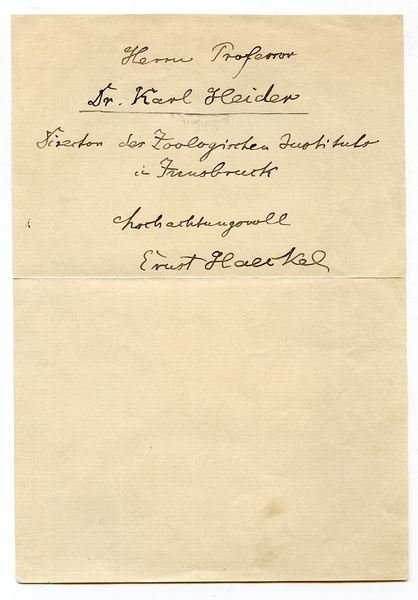 Herrn Professor
Dr. Karl Heider
Director des Zoologischen Instituts
in Innsbruck
hochachtungsvoll
Ernst Haeckel